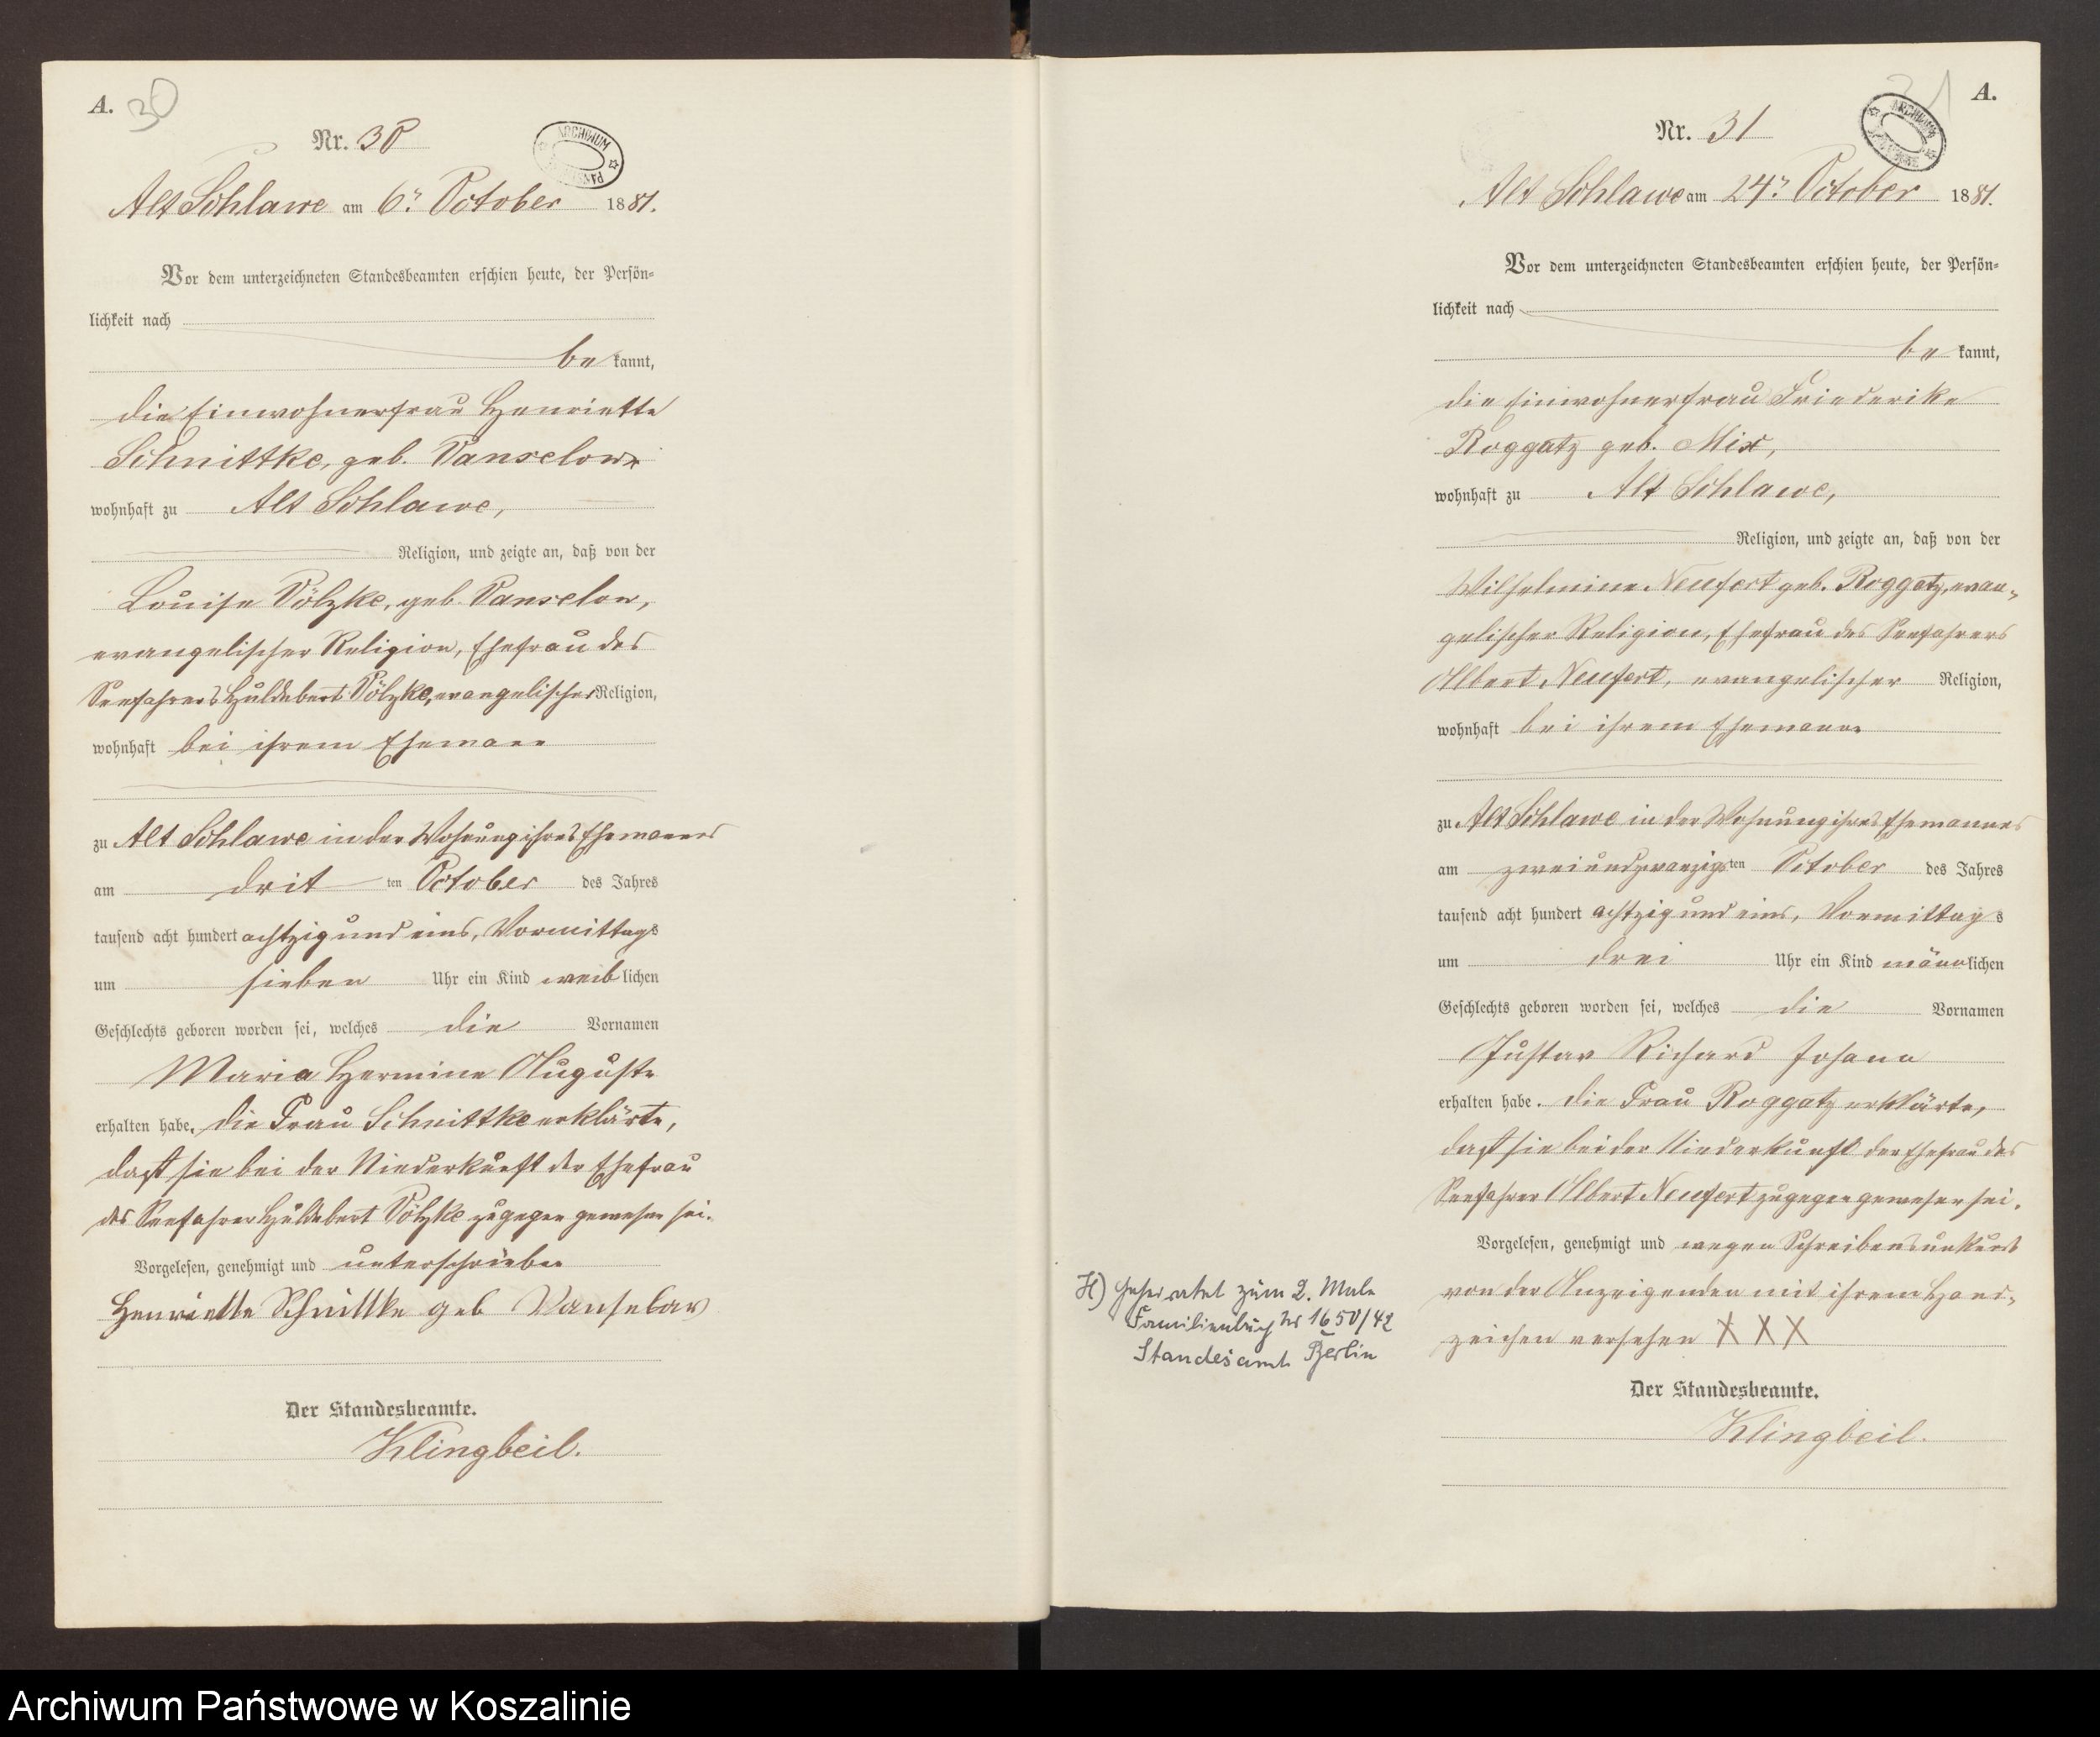 A. 30
Nr. 30
ARCHIWUM
Alt Schlawe am 6ⁿ October 1881.
Vor dem unterzeichneten Standesbeamten erschien heute, der Persön-
lichkeit nach
be kannt,
die Einwohnerfrau Henriette
Schnittke, geb. Vanselow
wohnhaft zu Alt Schlawe,
Religion, und zeigte an, daß von der
Louise Völzke, geb. Vanselow,
evangelischer Religion, Ehefrau des
Seefahrers Huldebert Völzke, evangelischer Religion,
wohnhaft bei ihrem Ehemann
zu Alt Schlawe in der Wohnung ihres Ehemannes
am drit ten October des Jahres
tausend acht hundert achtzig und eins, Vormittags
um sieben Uhr ein Kind weiblichen
Geschlechts geboren worden sei, welches die Vornamen
Maria Hermine Auguste
erhalten habe. Die Frau Schnittke erklärte,
daß sie bei der Niederkunft der Ehefrau
des Seefahrer Huldebert Völzke zugegen gewesen sei.
Vorgelesen, genehmigt und unterschrieben
Henriette Schnittke geb Vanselow
Der Standesbeamte.
Klingbeil.
31 A.
Nr. 31
ARCHIWUM
Alt Schlawe am 24ⁿ October 1881.
Vor dem unterzeichneten Standesbeamten erschien heute, der Persön-
lichkeit nach
be kannt,
die Einwohnerfrau Friederike
Roggatz geb. Mix,
wohnhaft zu Alt Schlawe,
Religion, und zeigte an, daß von der
Wilhelmine Neufert geb. Roggatz, evan-
gelischer Religion, Ehefrau des Seefahrers
Albert Neufert, evangelischer Religion,
wohnhaft bei ihrem Ehemann
zu Alt Schlawe in der Wohnung ihres Ehemannes
am zweiundzwanzigsten October des Jahres
tausend acht hundert achtzig und eins, Vormittags
um drei Uhr ein Kind männlichen
Geschlechts geboren worden sei, welches die Vornamen
Gustav Richard Johann
erhalten habe. Die Frau Roggatz erklärte,
daß sie bei der Niederkunft der Ehefrau des
Seefahrer Albert Neufert zugegen gewesen sei.
Vorgelesen, genehmigt und wegen Schreibensunkunde
von der Anzeigenden mit ihrem Hand-
zeichen versehen X X X
Der Standesbeamte.
Klingbeil.
H) Geheiratet zum 2. Male
Familienbuch Nr 1650/42
Standesamt Berlin
Archiwum Państwowe w Koszalinie